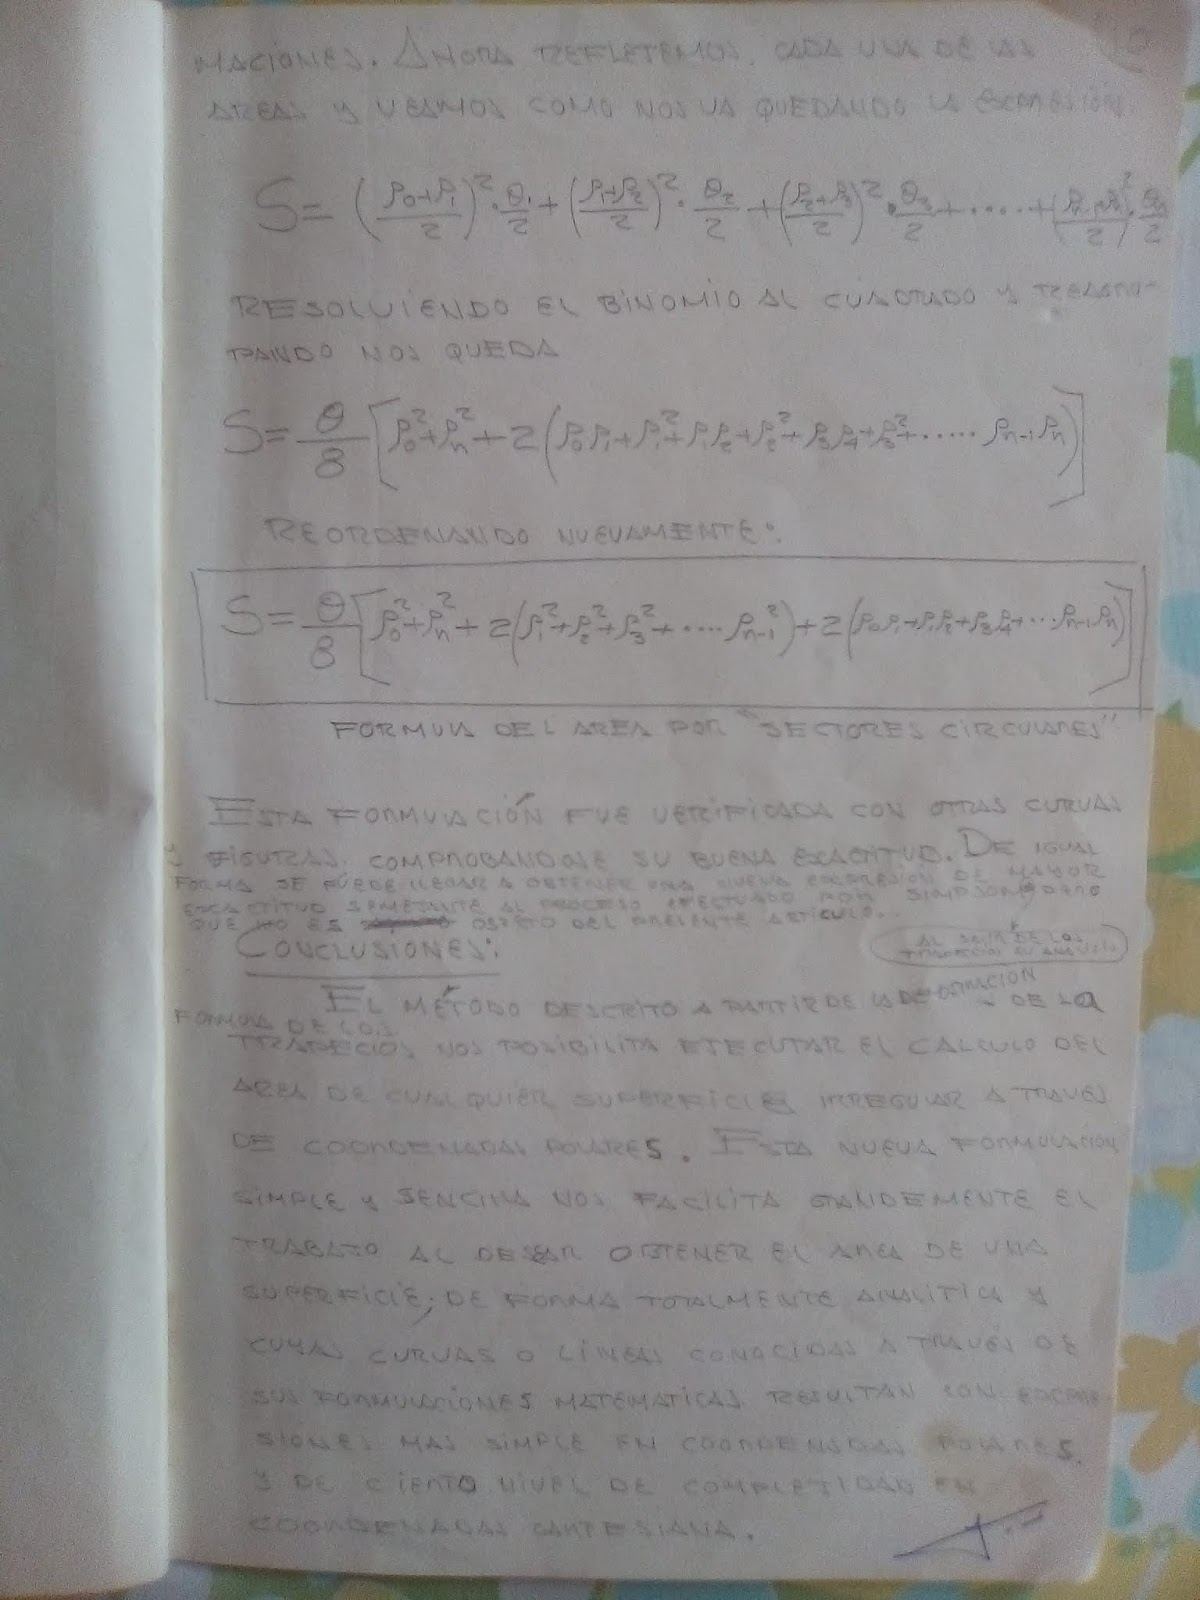 MACIONES. AHORA REFLETEMOS CADA UNA DE LAS
AREAS Y VEAMOS COMO NOS VA QUEDANDO LA EXPRESIÓN
S = (ρ₀+ρ₁/2)²·θ₁/2 + (ρ₁+ρ₂/2)²·θ₂/2 + (ρ₂+ρ₃/2)²·θ₃/2 + ..... + (ρₙ₋₁+ρₙ/2)²·θₙ/2
RESOLVIENDO EL BINOMIO AL CUADRADO Y REAGRU-
PANDO NOS QUEDA
S = θ/8 [ρ₀²+ρₙ²+2(ρ₀ρ₁+ρ₁²+ρ₁ρ₂+ρ₂²+ρ₃ρ₄+ρ₃²+..... ρₙ₋₁ρₙ)]
REORDENANDO NUEVAMENTE:
S = θ/8 [ρ₀²+ρₙ²+2(ρ₁²+ρ₂²+ρ₃²+....ρₙ₋₁²)+2(ρ₀ρ₁+ρ₁ρ₂+ρ₃ρ₄+...ρₙ₋₁ρₙ)]
FORMULA DEL AREA POR "SECTORES CIRCULARES"
ESTA FORMULACIÓN FUE VERIFICADA CON OTRAS CURVAS
Y FIGURAS COMPROBANDOSE SU BUENA EXACTITUD. DE IGUAL
FORMA SE PUEDE LLEGAR A OBTENER UNA NUEVA EXPRESIÓN DE MAYOR
EXACTITUD SEMEJANTE AL PROCESO EFECTUADO POR SIMPSON, PERO
QUE NO ES OBJETO DEL PRESENTE ARTÍCULO.
CONCLUSIONES:
AL DE LOS
EL MÉTODO DESCRITO A PARTIR DE LA DEFORMACIÓN DE LA
FORMULA DE LOS
TRAPECIOS NOS POSIBILITA EJECUTAR EL CALCULO DEL
AREA DE CUALQUIER SUPERFICIE IRREGULAR A TRAVÉS
DE COORDENADAS POLARES. ESTA NUEVA FORMULACIÓN
SIMPLE Y SENCILLA NOS FACILITA GRANDEMENTE EL
TRABAJO AL DESEAR OBTENER EL AREA DE UNA
SUPERFICIE; DE FORMA TOTALMENTE ANALÍTICA Y
CUYAS CURVAS O LÍNEAS CONOCIDAS A TRAVÉS DE
SUS FORMULACIONES MATEMATICAS RESULTAN CON EXPRE-
SIONES MAS SIMPLE EN COORDENADAS POLARES
Y DE CIERTO NIVEL DE COMPLEJIDAD EN
COORDENADAS CARTESIANA.